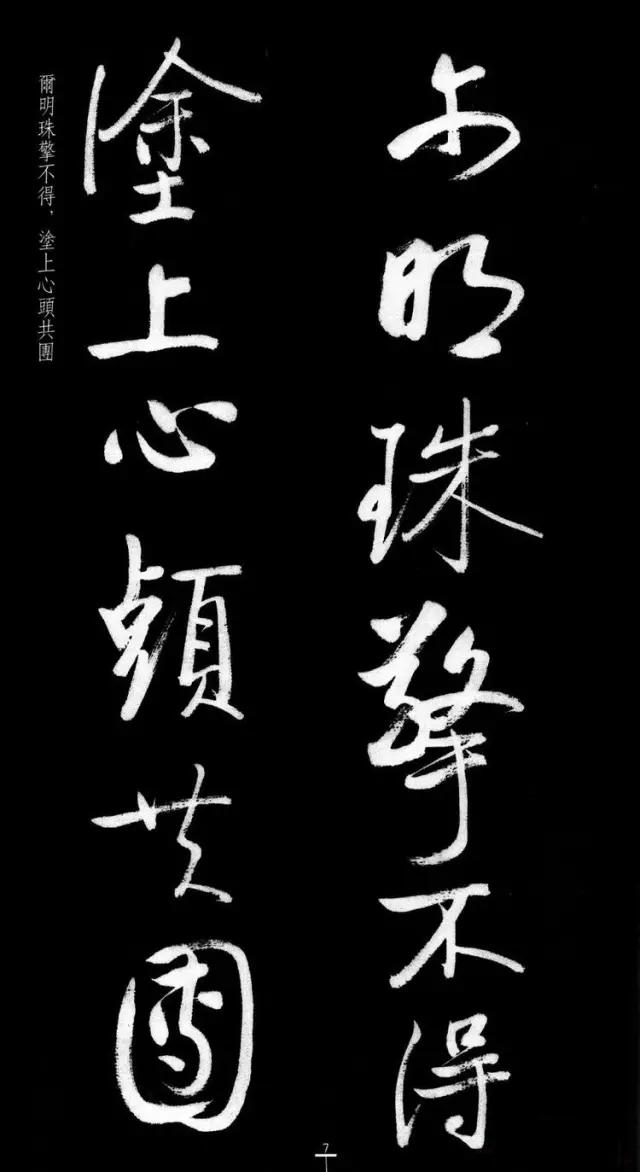 尔明珠擎不得
塗上心頭共團
爾明珠擎不得，塗上心頭共團
7